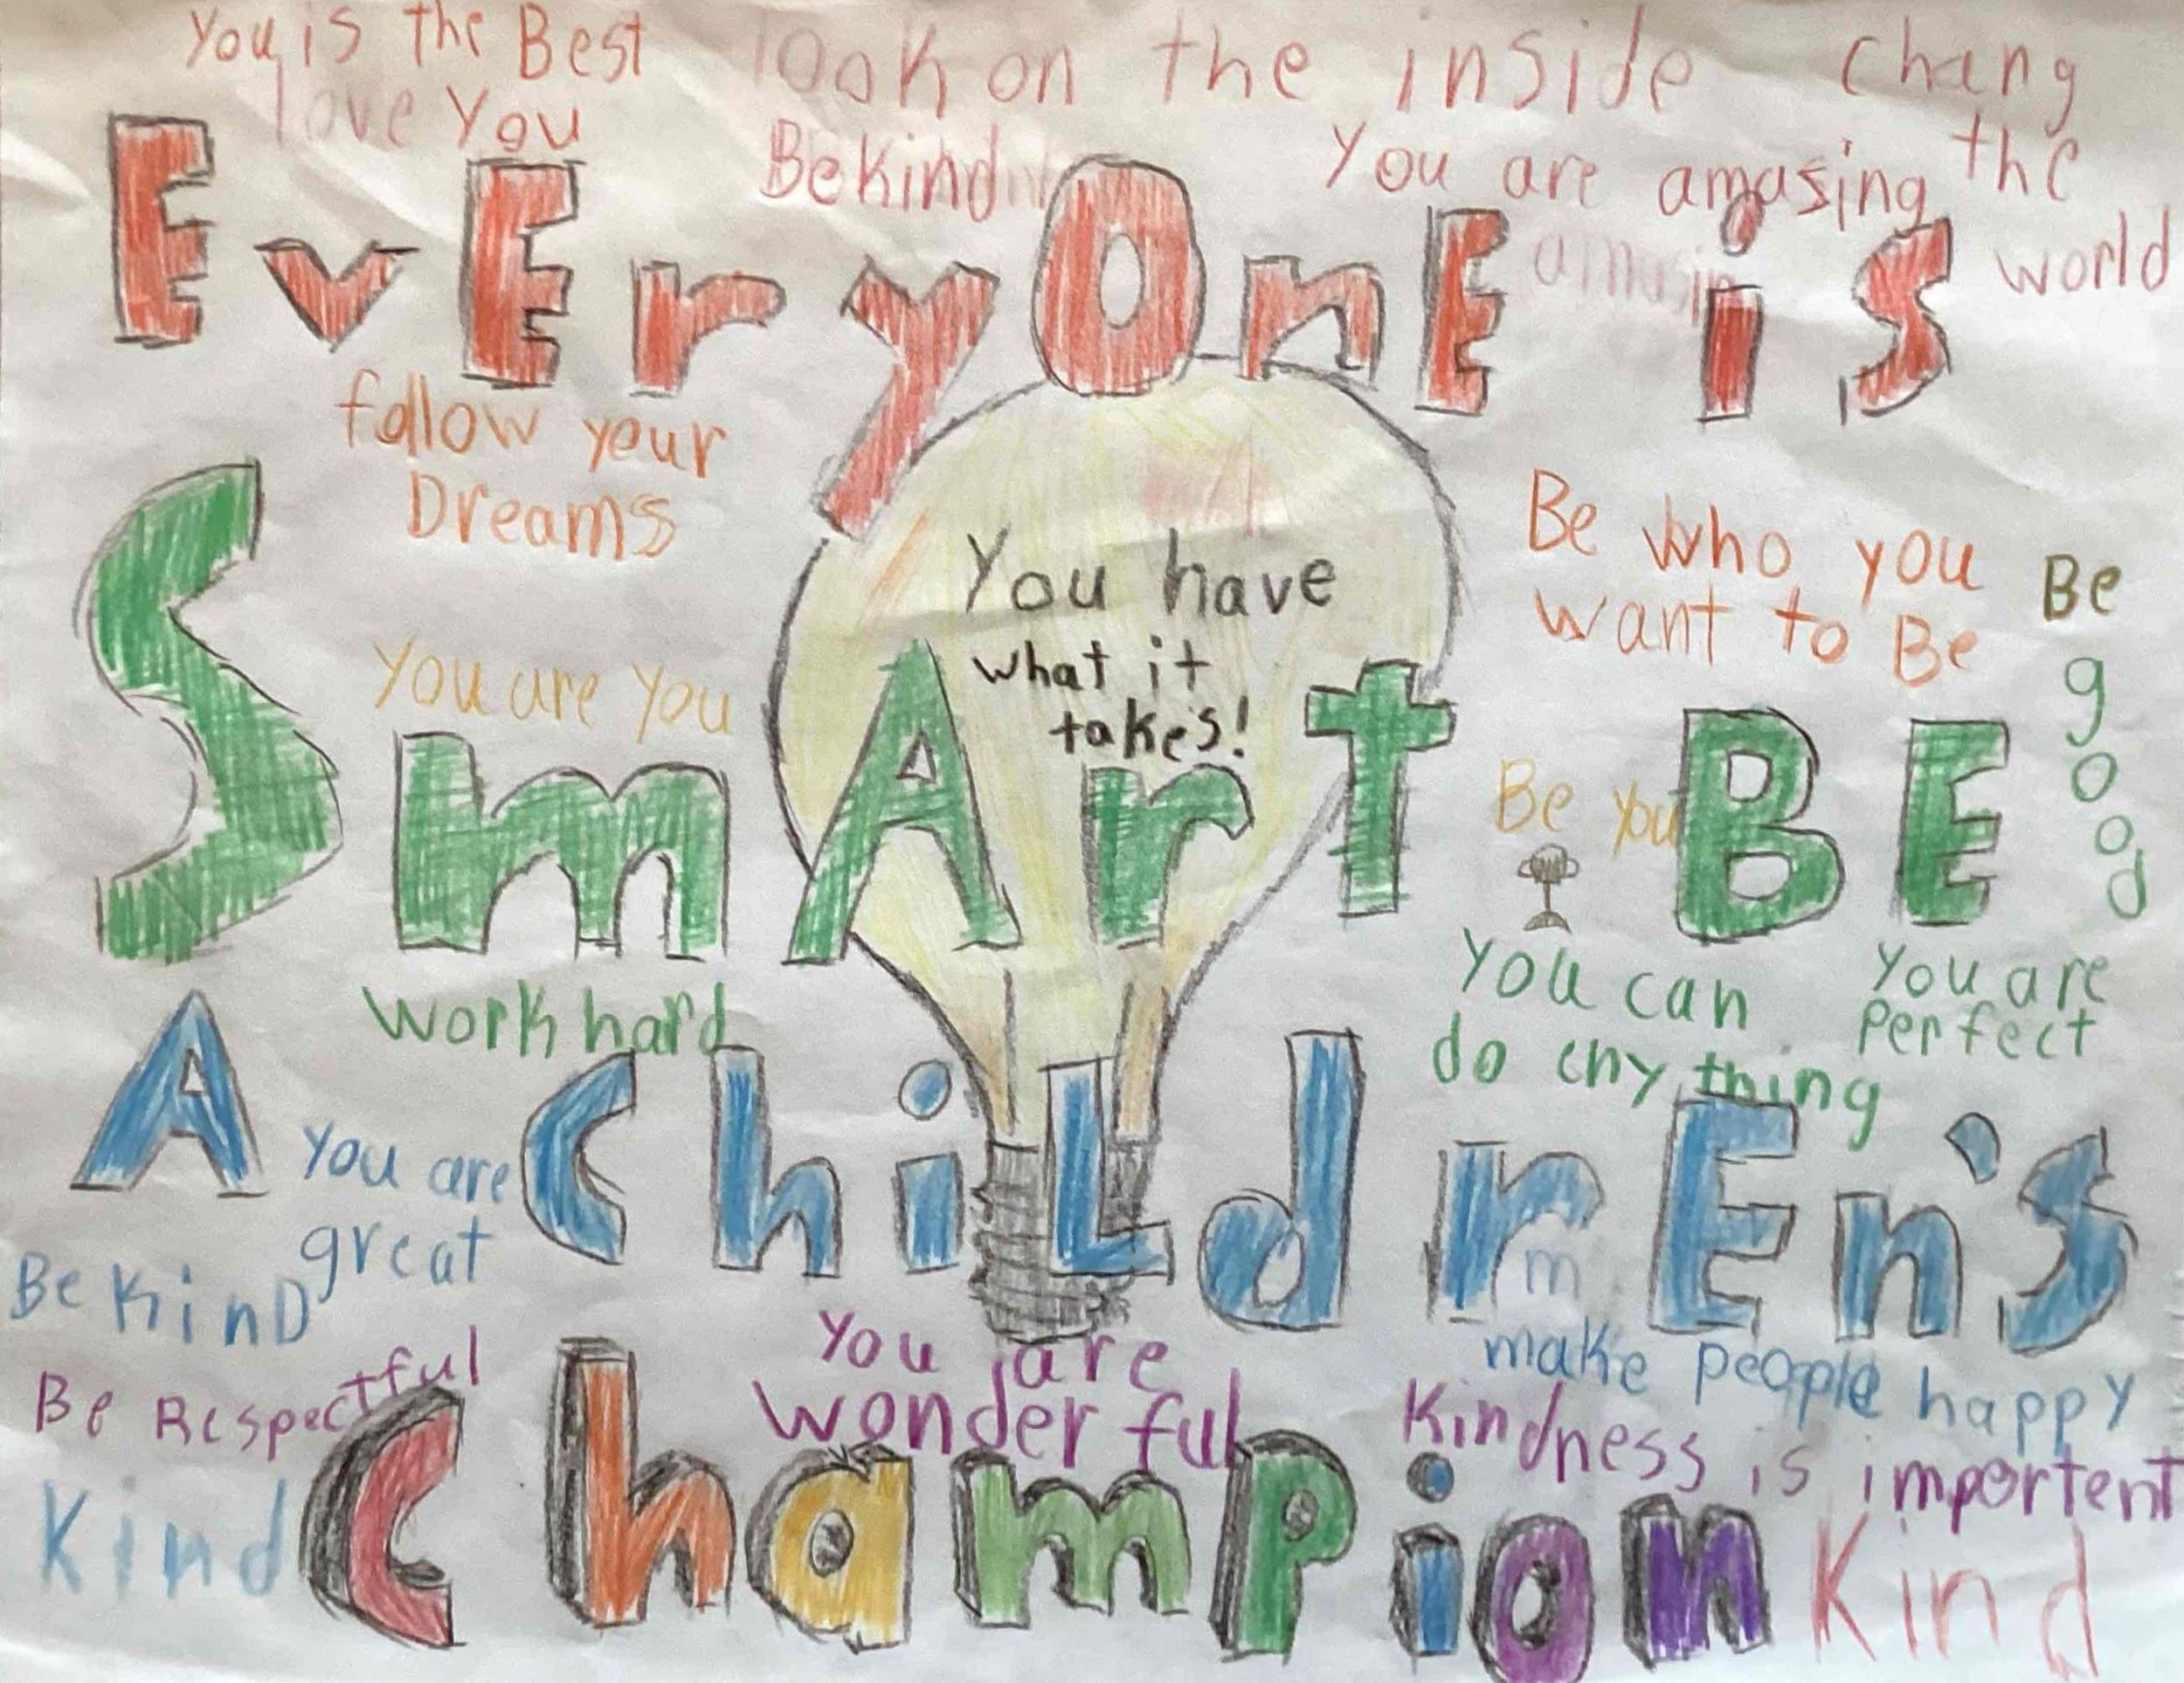 You is the Best
love You
look on the inside
chang
the
world
Be kind
You are amasing
EvEryOnE is
follow your
Dreams
You have
what it
takes!
Be who you
want to Be
Be
good
You are You
Be You
SmArt BE
work hard
You can
do eny thing
You are
Perfect
A ChiLdrEn's
You are
great
Be KinD
m
make people happy
Be Respectful
You are
wonder ful
Kindness is importent
Kind
Champion
Kind